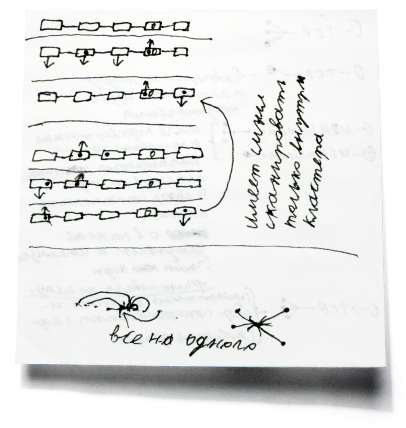 имеет смысл
сканировать
только внутри
кластера
все на одного